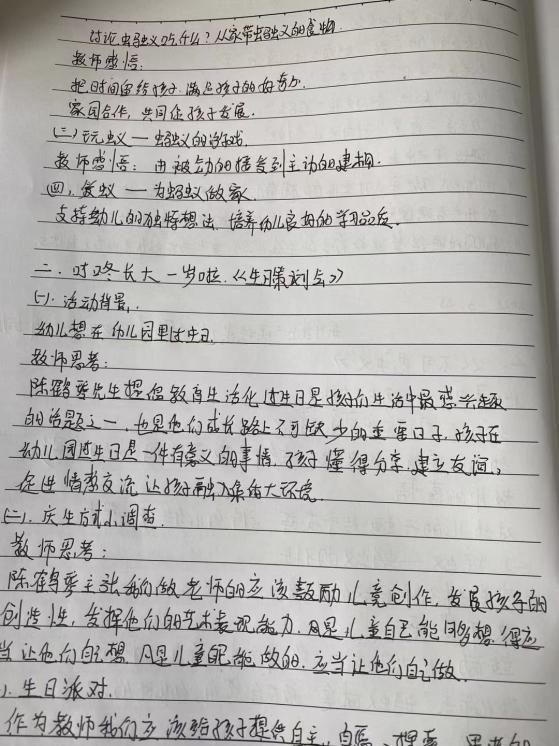 讨论蚂蚁巧.什么?从家带蚂蚁的食物.
教师感悟:
把时间留给孩子.满足孩子的好奇心.
家园合作,共同促孩子发展.
(三)玩蚁——蚂蚁的游戏.
教师感悟:由被动的接受到主动的建构.
(四).爱蚁——为蚂蚁做家.
支持幼儿的独特想法.培养幼儿良好的学习品质.
二.叮咚长大一岁啦.《生日策划会》
(一).活动背景.
幼儿想在幼儿园里过生日.
教师思考:
陈鹤琴先生提倡教育生活化过生日是孩子们生活中最感兴趣
的话题之一,也是他们成长路上不可缺少的重要日子.孩子在
幼儿园过生日是一件有意义的事情.孩子懂得分享.建立友谊,
促进情感交流让孩子融入集体大环境.
(二).庆生方式小调查.
教师思考:
陈鹤琴主张我们做老师的应该鼓励儿童创作,发展孩子的
创造性,发挥他们的艺术表现能力.凡是儿童自己能够想得应
当让他们自己想.凡是儿童能够做的.应当让他们自己做.
).生日派对.
作为教师我们应该给孩子提供自主、自